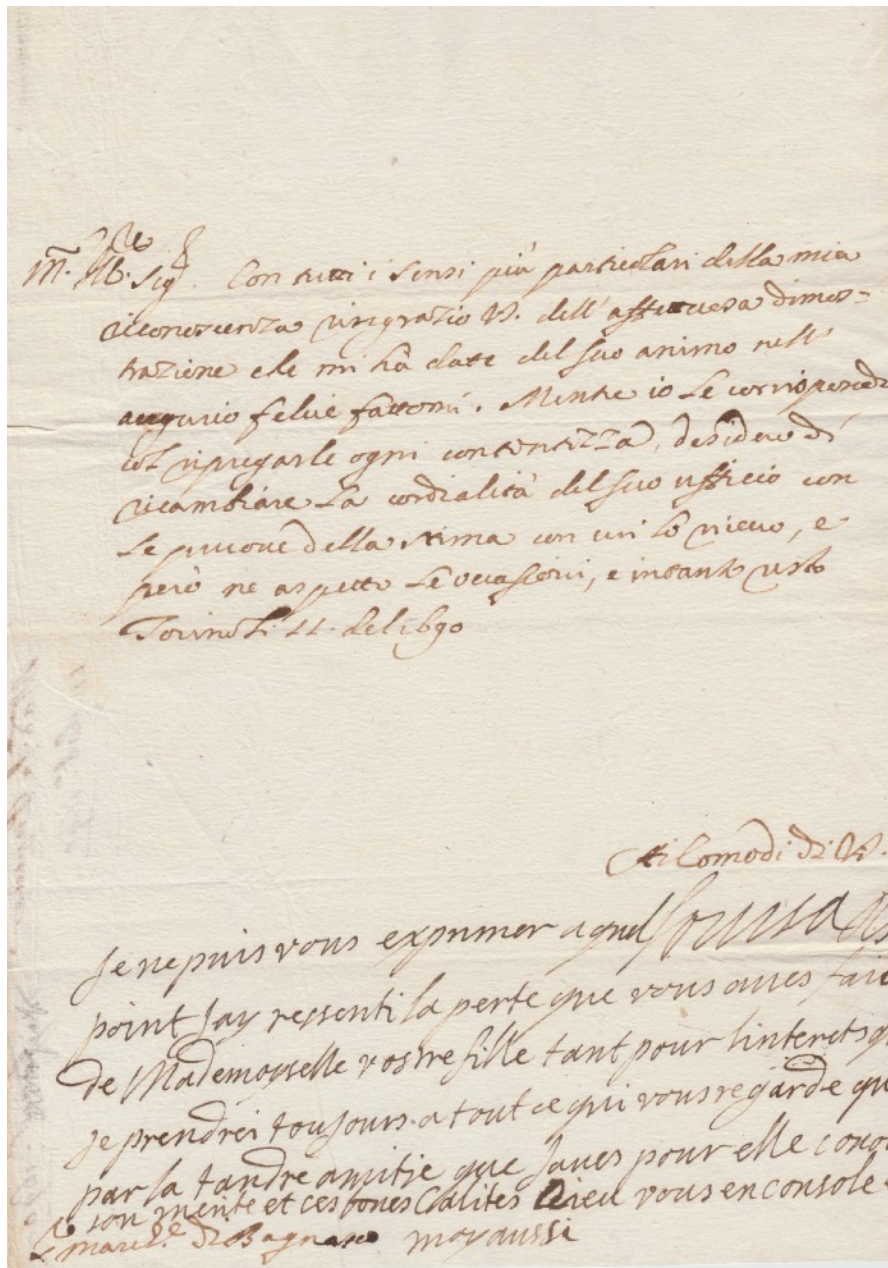 M. Ill.re Sig.
Con tutti i sensi più particolari della mia
riconoscenza ringrazio V. dell'affettuosa dimos-
trazione che mi hà date del suo animo nell'
augurio felice fattomi. Mentre io le corrispondo
col ripregarle ogni contentezza, desidero di
ricambiare la cordialità del suo ufficio con
le pruove della stima con cui lo ricevo, e
però ne aspetto le occasioni, e intanto resto
Torino li 11. del 1690
Ai Comodi di V.
Je ne puis vous exprimer a quel
point Jay ressenti la perte que vous aues fait
de Mademoyselle vostre fille tant pour linterets q
je prendrei toujours a tout ce qui vous regarde qu
par la tandre amitie que Javes pour elle cono
son merite et ces bones Calites Dieu vous en console
moy aussi
March.e di Bagnasco